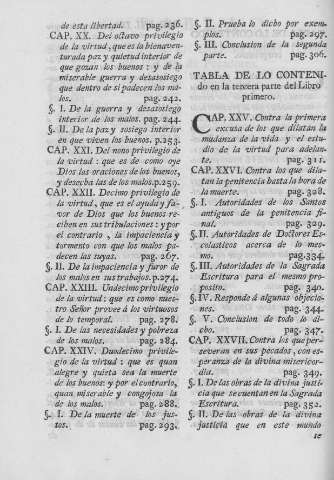 de esta libertad. pag. 236.
CAP. XX. Del octavo privilegio
de la virtud, que es la bienaven-
turada paz y quietud interior de
que gozan los buenos: y de la
miserable guerra y desasosiego
que dentro de sí padecen los ma-
los. pag. 242.
§. I. De la guerra y desasosiego
interior de los malos. pag. 244.
§. II. De la paz y sosiego interior
en que viven los buenos. p. 253.
CAP. XXI. Del nono privilegio de
la virtud: que es de como oye
Dios las oraciones de los buenos,
y desecha las de los malos. p. 259.
CAP. XXII. Decimo privilegio de
la virtud, que es el ayuda y fa-
vor de Dios que los buenos re-
ciben en sus tribulaciones: y por
el contrario, la impaciencia y
tormento con que los malos pa-
decen las suyas. pag. 267.
§. II. De la impaciencia y furor de
los malos en sus trabajos. p. 274.
CAP. XXIII. Undecimo privilegio
de la virtud: que es como nues-
tro Señor provee á los virtuosos
de lo temporal. pag. 278.
§. I. De las necesidades y pobreza
de los malos. pag. 284.
CAP. XXIV. Duodecimo privile-
gio de la virtud: que es quan
alegre y quieta sea la muerte
de los buenos: y por el contrario,
quan miserable y congojosa la
de los malos. pag. 288.
§. I. De la muerte de los jus-
tos. pag. 293.
§. II. Prueba lo dicho por exem-
plos. pag. 297.
§. III. Conclusion de la segunda
parte. pag. 306.
TABLA DE LO CONTENI-
do en la tercera parte del Libro
primero.
CAP. XXV. Contra la primera
excusa de los que dilatan la
mudanza de la vida y el estu-
dio de la virtud para adelan-
te. pag. 311.
CAP. XXVI. Contra los que dila-
tan la penitencia hasta la hora de
la muerte. pag. 328.
§. I. Autoridades de los Santos
antiguos de la penitencia fi-
nal. pag. 329.
§. II. Autoridades de Doctores Es-
colasticos acerca de lo mes-
mo. pag. 334.
§. III. Autoridades de la Sagrada
Escritura para el mesmo pro-
posito. pag. 340.
§. IV. Responde á algunas objecio-
nes. pag. 344.
§. V. Conclusion de todo lo di-
cho. pag. 347.
CAP. XXVII. Contra los que per-
severan en sus pecados, con es-
peranza de la divina misericor-
dia. pag. 349.
§. I. De las obras de la divina justi-
cia que se cuentan en la Sagrada
Escritura. pag. 352.
§. II. De las obras de la divina
justicia que en este mundo
se